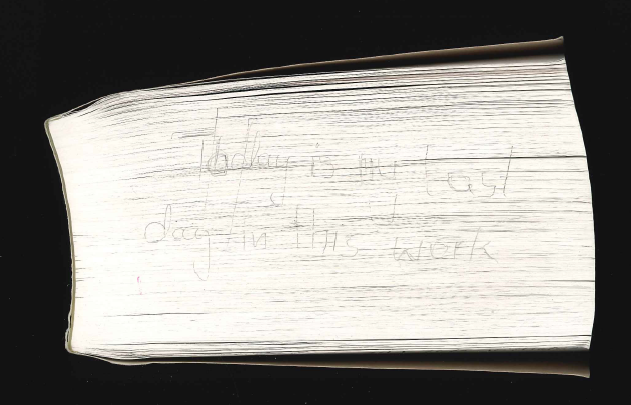 Today is my last
day in this work